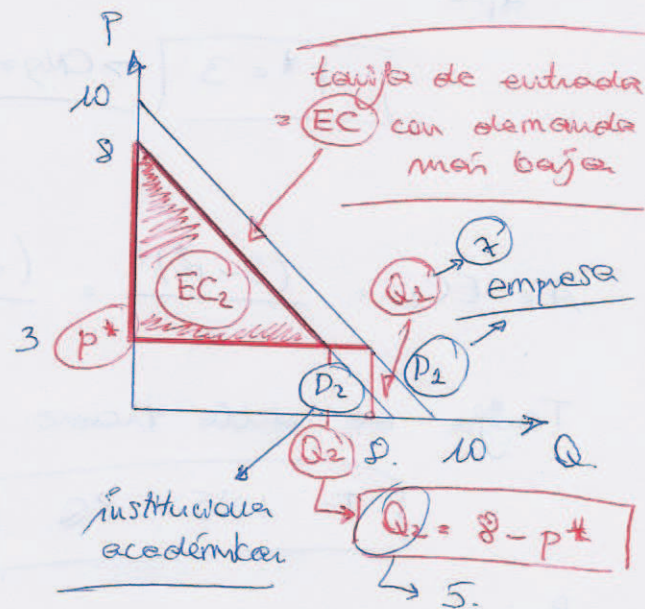 P
10
8
3
p*
EC₂
tarifa de entrada
= EC con demanda
más baja
Q₁ → 7
empresa
D₁
D₂
Q₂
8.
10
Q
instituciones
académicas
Q₂ = 8 - p*
5.